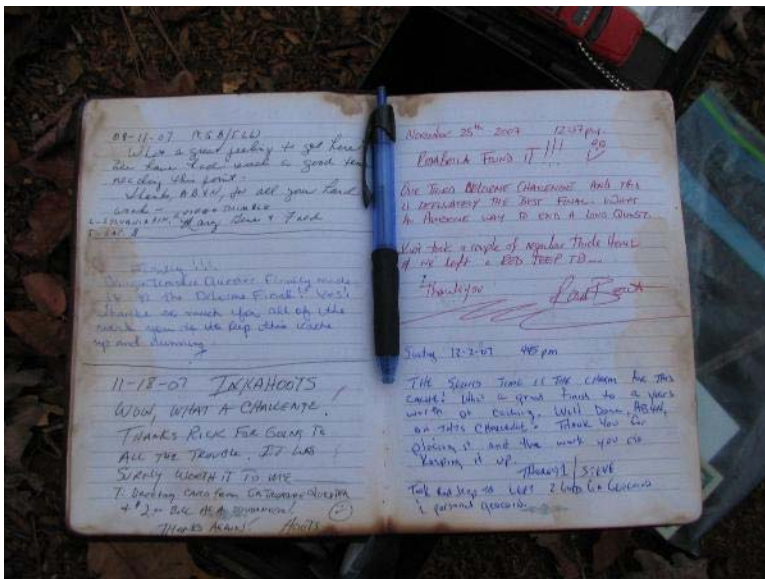 What a great feeling to get here
We have had such a good time
this point.
Thanks, ABXN, for all your hard
work -
Mary Sue &
Finally !!!
Finally made
it to the Delorme Final! Yes!
Thanks so much for all of the
work you do to keep this cache
up and running
11-18-07 INKAHOOTS
WOW, WHAT A CHALLENGE.
THANKS RICK FOR GOING TO
ALL THE TROUBLE. IT WAS
SURELY WORTH IT TO ME
THANKS AGAIN! HOOTS
November 25th 2007 12:47 pm
FOUND IT !!!
OUR THIRD DELORME CHALLENGE AND THIS
IS DEFINATELY THE BEST FINAL. WHAT
AN AWESOME WAY TO END A LONG QUEST.
took a couple of regular
left a RED JEEP TB
Thank you
Sunday 12-2-07 4:45 pm
THE SECOND TIME IS THE CHARM FOR THIS
CACHE! What a great finish to a years
worth of caching. Well Done, ABXN,
on THIS CHALLENGE. Thank You for
placing it and the work you do
Keeping it up.
STEVE
Took Red Jeep TB LEFT 2
1 personal geocoin.